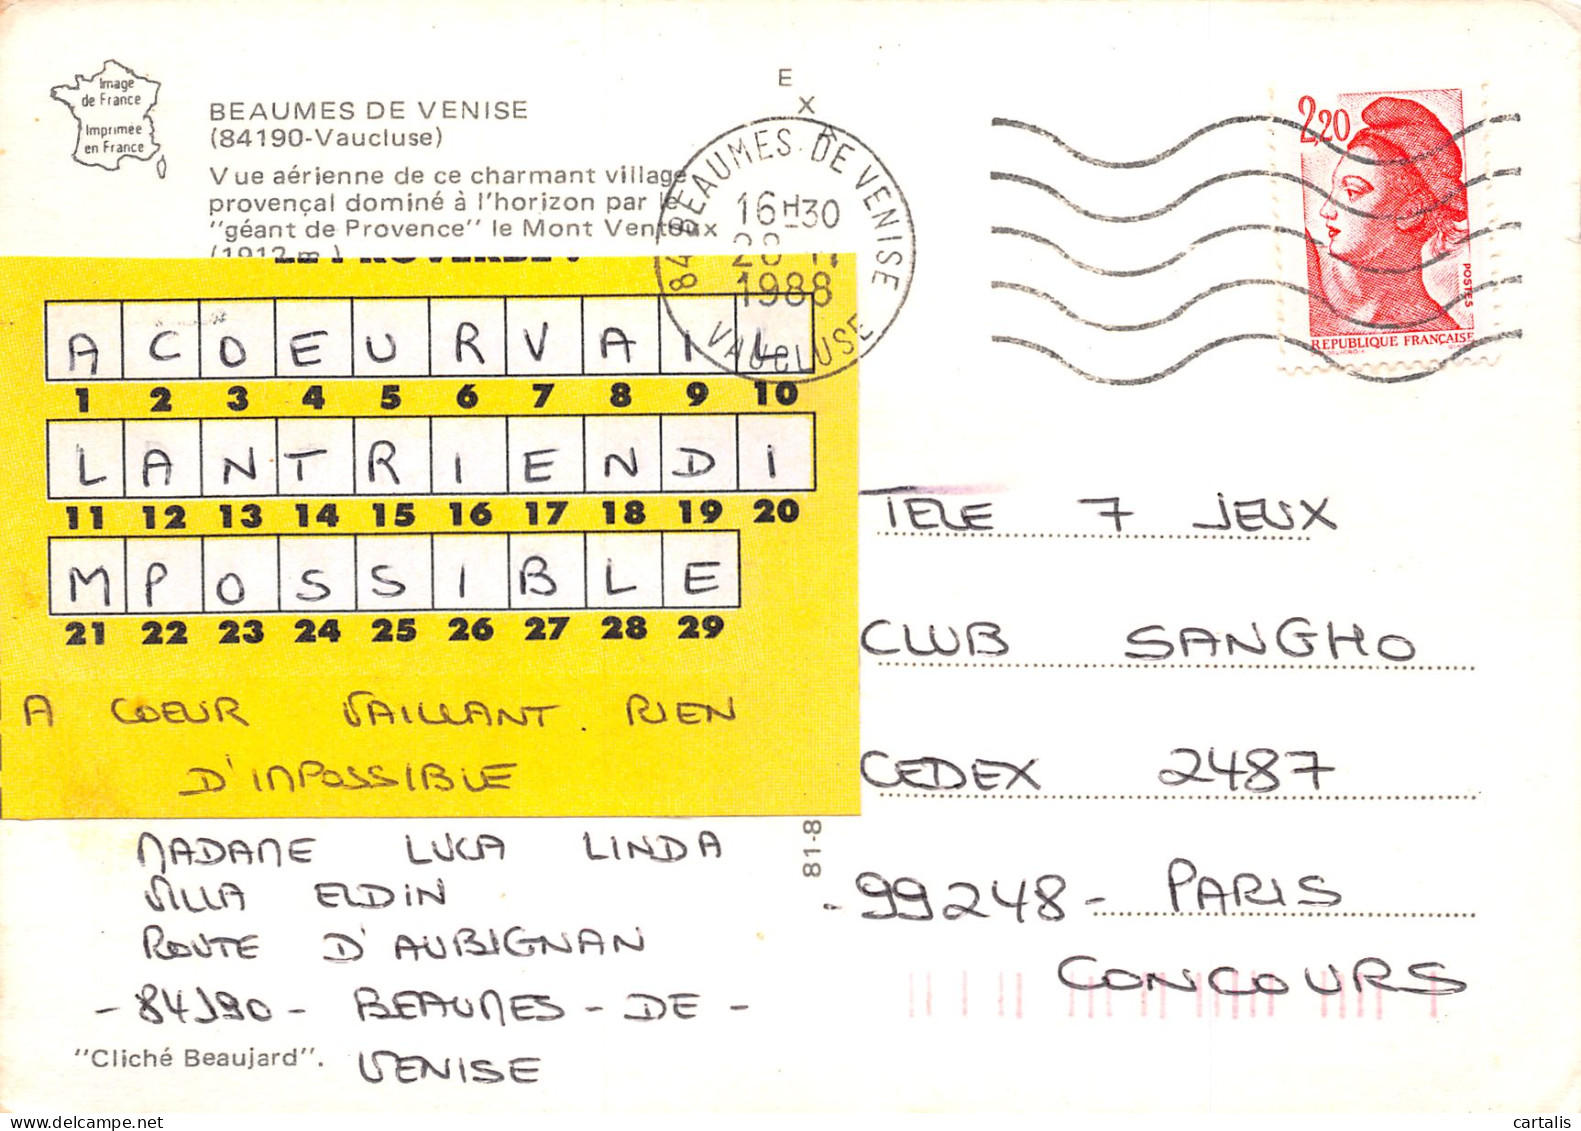 Image
de France
Imprimée
en France
BEAUMES DE VENISE
(84190-Vaucluse)
Vue aérienne de ce charmant village
provençal dominé à l'horizon par le
"géant de Provence" le Mont Ventoux
(1912 m)
LE PROVERBE :
A C O E U R V A I L
1 2 3 4 5 6 7 8 9 10
L A N T R I E N D I
11 12 13 14 15 16 17 18 19 20
M P O S S I B L E
21 22 23 24 25 26 27 28 29
A COEUR VAILLANT. RIEN
D'IMPOSSIBLE
MADAME LUCA LINDA
VILLA ELDIN
ROUTE D'AUBIGNAN
- 84190 - BEAUMES - DE -
VENISE
"Cliché Beaujard".
E
X
84 BEAUMES-DE VENISE
16H30
1988
VAUCLUSE
2,20
POSTES
REPUBLIQUE FRANÇAISE
TELE 7 JEUX
CLUB SANGHO
CEDEX 2487
- 99248 - PARIS
CONCOURS
81-8
cartalis